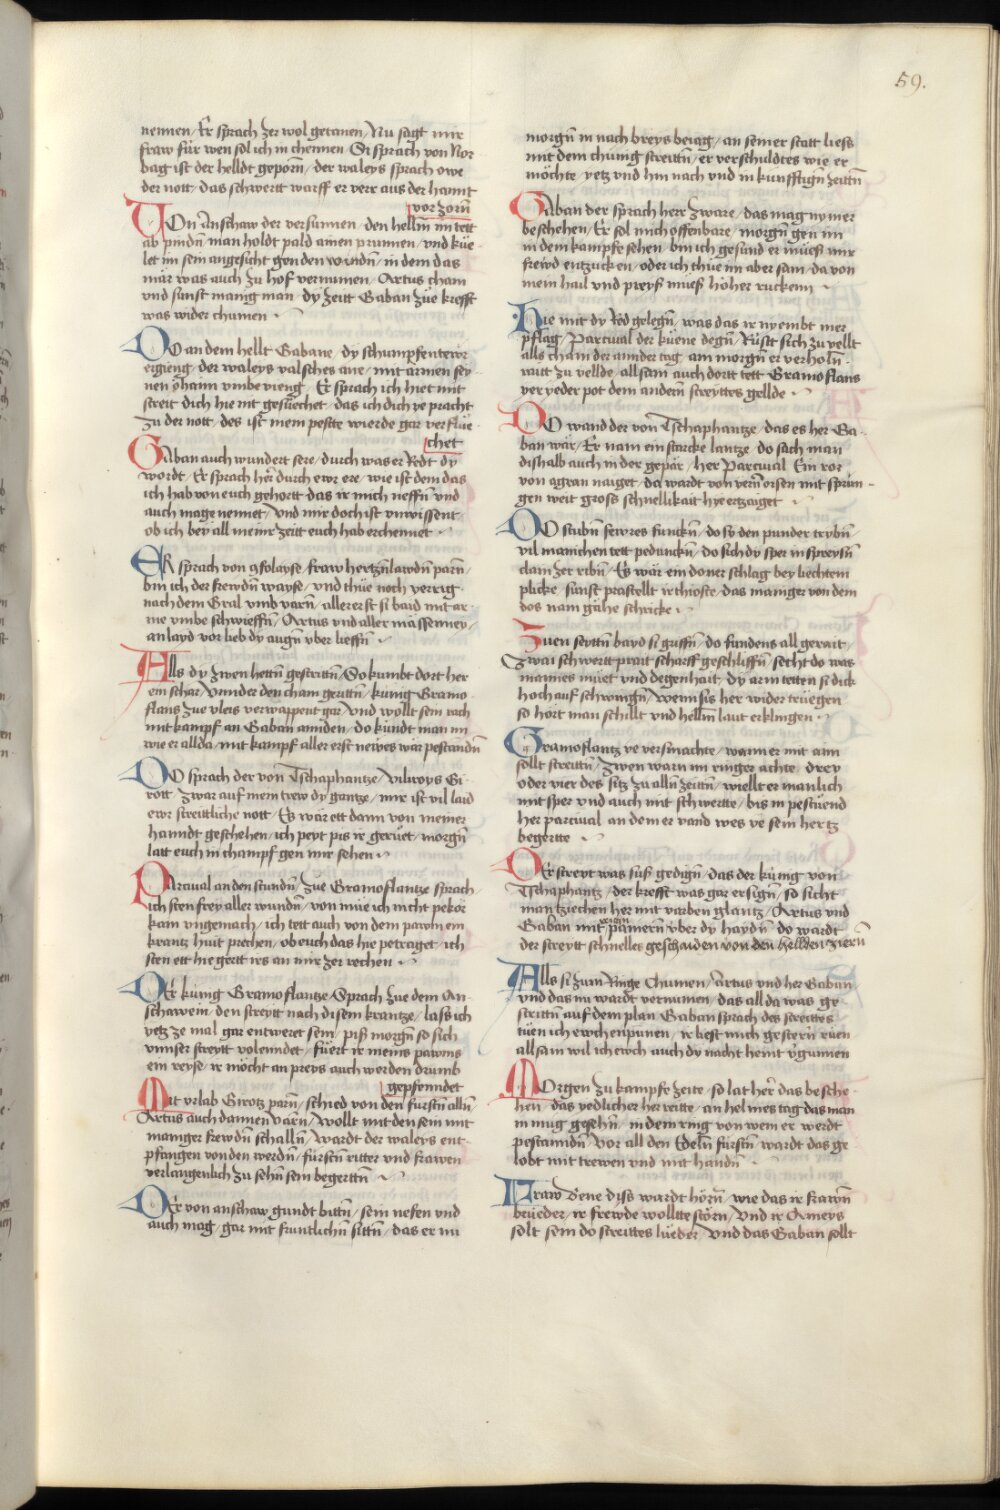 59.
nennen / Er sprach zer wol getanen / Nu sagt mir
fraw für wen sol ich in chennen / Si sprach von Nor
bag ist der helldt geporn̄ / der waleys sprach owe
der nott / das schwertt warff er verr aus der hannt
vor zorn̄
VOn Anschaw der versunnen / den hellm̄ im tett
ab pindn̄ man holdt pald ainen prunnen / vnd küe
let im sein angesicht gen den windn̄ / in dem das
mär was auch zu hof vernumen / Artus cham
vnd sunst manig man / dy zeitt Gaban zue krefft
was wider chumen
DO an dem hellt Gabane / dy schumpfentewr
ergieng / der waleys valsches ane / mit armen sey
nen öhaim vmbe vieng / Er sprach ich hiet mit
streit dich hie nit gesuechet / das ich dich ye pracht
zu der nott / des ist mein peste wierde gar verflue
chet
GAban auch wundert sere / durch was er Redt dy
wordt / Er sprach her durch ewr ere / wie ist dem das
ich hab von euch gehortt das ir mich neffn̄ vnd
auch mage nennet / Vnd mir doch ist vnwissent
ob ich bey all meinr zeitt euch hab erchennet
ER sprach von Gsolayse / fraw hertzn̄lawdn̄ parn̄
bin ich der frewdn̄ wayse / vnd thüe noch verrig
nach dem Gral vmb varn̄ / aller erst si baid mit ar
me vmbe schwieffn̄ / Artus vnd aller massenney
an layd vor lieb dy augn̄ vber lieffn̄
ALls dy zwen hettn̄ gestrittn̄ / So kumbt dort her
ein schar / vnnder den cham geritn̄ / kunig Gramo
flans zue vleis verwappent gar / vnd wollt sein rach
mit kampf an Gaban annden / do kundt man im
wie er allda / mit kampf aller erst newes war pestandn̄
DO sprach der von Tschaphantze / Vilroys Gi
rott / zwar auf mein trew dy gantze / mir ist vil laid
ewr streittliche nott / Es war ett dann von meiner
hanndt geschehen / ich peyt pis ir geruet / morgn̄
latt euch in champf gen mir sehen
PArcival an den stundn̄ / zue Gramoflantze sprach
ich sten frey aller wundn̄ / von müe ich nicht pekor
kain vngemach / ich tett auch von dem pawm ein
krantz huit prechen / ob euch das hie petraget / ich
sten ett hie gertt irs an mir zer rechen
DEr kunig Gramoflantze / Sprach zue dem An
schawein / den streytt nach disem krantze / lass ich
yetz ze mal gar entweret sein / piss morgn̄ so sich
vnnser streytt volenndet / füert ir meins pawms
ein reyse / ir möcht an preys auch werden drumb
gepfenndet
MIt vrlab Girotz parn̄ / schied von den fursten alln̄
Artus auch dannen varn̄ / Wollt mit den sein mit
maniger frewdn̄ schalln̄ / Wardt der waleys ent
pfangen von den werdn̄ / fürsten ritter vnd frawen
verlangenlich zu sehn̄ sein begerttn̄
DEr von anschaw gundt bittn̄ / sein nefen vnd
auch mag / gar mit fruntlichn̄ sittn̄ / das er im
morgn̄ in nach breys beiag / an seiner statt liess
mit dem chunig streittn̄ / er verschuldtes wie er
möchte / yetz vnd hin nach vnd in kunfftign̄ zeittn̄
GAban der sprach herr zware / das mag nymer
beschehen / Er sol mich offenbare / morgn̄ gen im
in dem kampfe sehen / bin ich gesund er müess mir
frewd entzucken / oder ich thüe im aber sam / da von
mein hail vnd preyss müess höher ruckenn
Hie mit dy Red gelegn̄ / was das ir nyembt mer
pflag / Parcival der küene degn̄ / Rüst sich zu vellt
alls cham der annder tag / am morgn̄ er verholn̄
raitt zu vellde / all sam auch dortt tett Gramoflans
ver yeder pot dem andern̄ streyttes gellde
DO wand der von Tschaphantze / das es her Ga
ban wär / Er nam ein starcke lantze / do sach man
dishalb auch in der gepär / her Parcival / Ein ror
von agran naiget / da wardt von vern̄ orsen mit sprün
gen weit gross schnellikait hye ertzaiget
DO stubn̄ fewres funckn̄ / do sy den punder trybn̄
vil manichen tett pedunckn̄ / do sich dy sper in spreyssn̄
clain zer ribn̄ / Es wär ein doner schlag bey liechtem
plicke / sunst prastellt ir thioste / das maniger von dem
dos nam gähe schricke
Zuen seyttn̄ bayd si griffn̄ / do fundens all gerait
Zwai schwertt prait scharff geschliffn̄ / secht do was
mannes müet vnd degenhait / dy arm tetten si dick
hoch auf schwingn̄ / wenn sis her wider truegen
so hört man schillt vnd hellm̄ laut erklingen
GRamoflantz ye versmachte / wann er mit aim
sollt streittn̄ / zwen warn im ringer achte / drey
oder vier des sitz zu alln̄ zeittn̄ / wiellt er manlich
mit sper vnd auch mit schwertte / bis in pestüend
her parcival an dem er vand wes ye sein hertz
begertte
DEr streyt was süss gedign̄ / das der kunig von
Tschaphantz / der krefft was gar ersign̄ / so sicht
man tziechen her mit varben glantz / Artus vnd
Gaban mit pämern vber dy haydn̄ / do wardt
der streytt schnelles geschaiden von den hellden ziern̄
ALls si zum Ringe Chumen / Artus vnd her Gaban
vnd das nu wardt vernumen / das all da was ge
strittn̄ auf dem plan / Gaban sprach des streittes
tüen ich ewch enpunen / ir liest mich gestern̄ rüen
all sam wil ich ewch auch dy nacht heint vergunnen
MOrgen zu kampfe zeite / so lat her das besche
hen / das yedlicher her reitte / an helmes tag das man
in mug gesehn̄ / in dem ring von wem er werdt
pestanndn̄ / Vor all den Edeln̄ fürstn̄ wardt das ge
lobt mit trewen vnd mit handn̄
FRaw Bene diss wardt hörn̄ / wie das ir frawn̄
brüeder / ir frewde wollte störn̄ / Vnd ir Ameys
solt sein do streittes lüeder / vnd das Gaban sollt